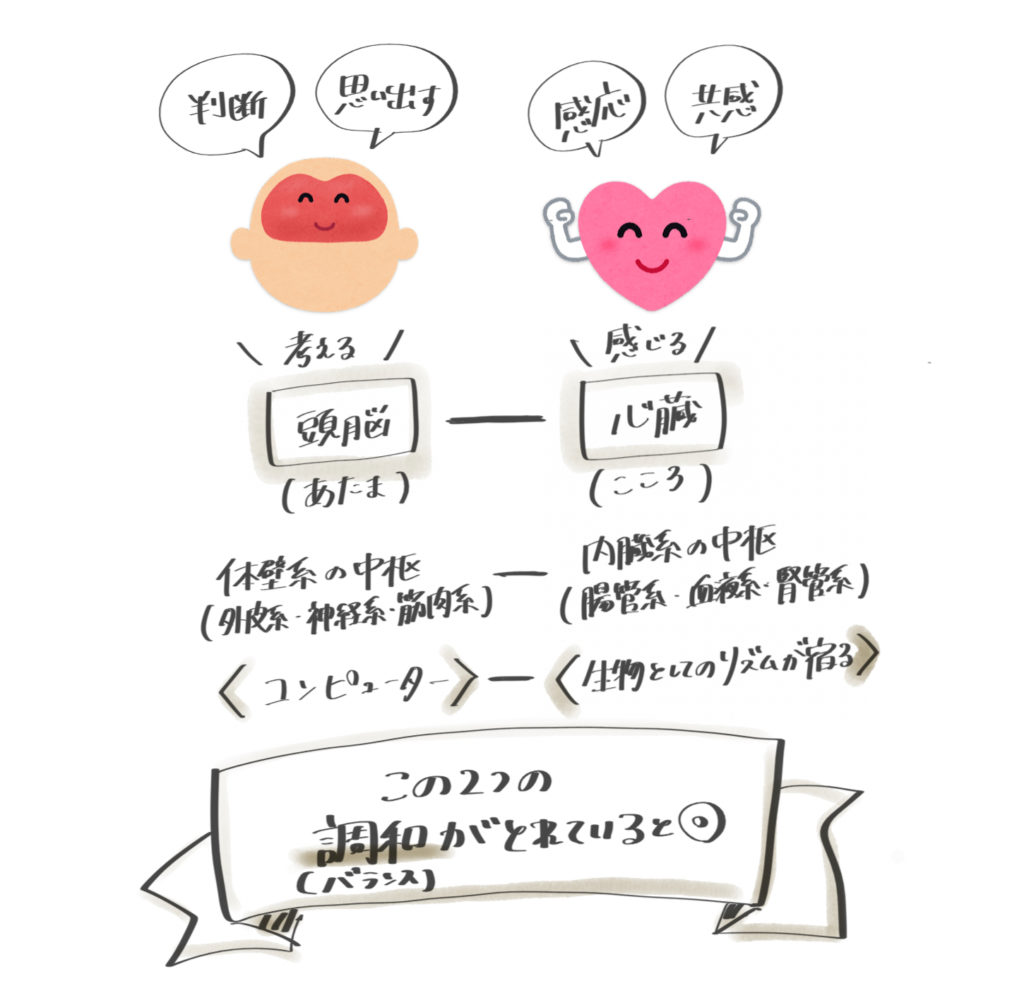 判断
思い出す
感応
共感
\ 考える /
頭脳
(あたま)
\ 感じる /
心臓
(こころ)
体壁系の中枢
(外皮系・神経系・筋肉系)
内臓系の中枢
(腸管系・血液系・腎管系)
〈コンピューター〉
〈生物としてのリズムが宿る〉
この2つの
調和がとれていると◎
(バランス)